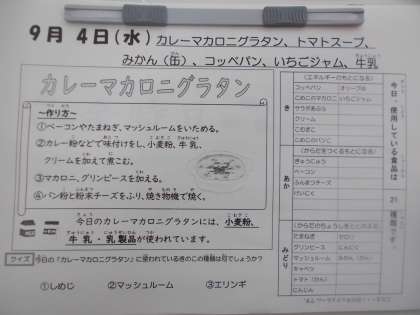 9月 4日(水) カレーマカロニグラタン、トマトスープ、
みかん(缶)、コッペパン、いちごジャム、牛乳
カレーマカロニグラタン
~作り方~
①ベーコンやたまねぎ、マッシュルームをいためる。
②カレー粉などで味付けをし、小麦粉、牛乳、
クリームを加えて煮こむ。
③マカロニ、グリンピースを加える。
④パン粉と粉末チーズをふり、焼き物機で焼く。
今日のカレーマカロニグラタンには、小麦粉、
牛乳・乳製品が使われています。
クイズ 今日の「カレーマカロニグラタン」に使われているきのこの種類は何でしょうか?
①しめじ ②マッシュルーム ③エリンギ
今日、使用している食品は 21 種類です。
き
(エネルギーのもとになる)
コッペパン
こめこマカロニ いちごジャム
サラダあぶら
クリーム
こむぎこ
こめこのパンこ
あか
(からだをつくるもとになる)
ぎゅうにゅう
ベーコン
ふんまつチーズ
みどり
(からだのちょうしをととのえる)
たまねぎ セロリ
グリンピース にんにく
マッシュルーム みかん(かん)
キャベツ
トマト(かん)
にんじん